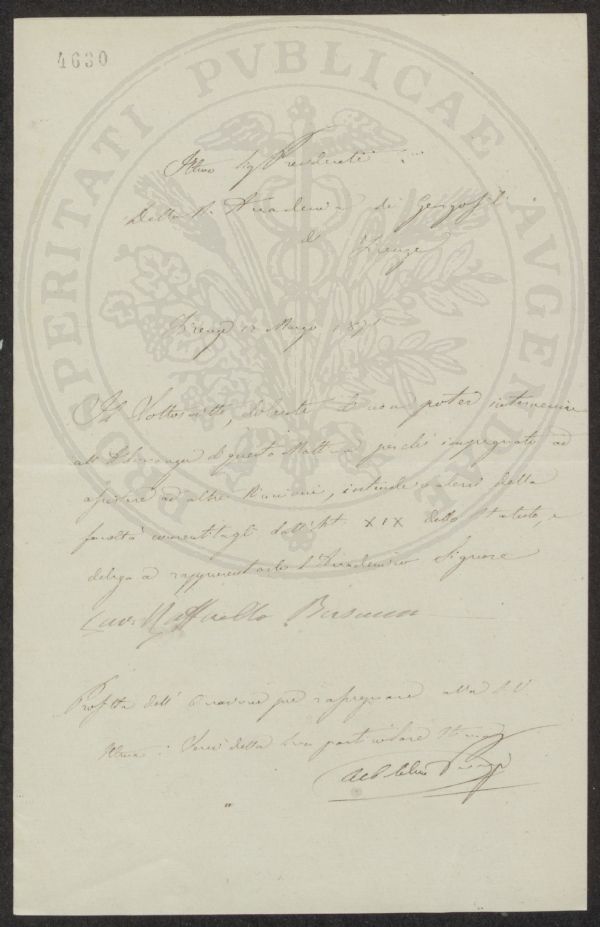 4630
PROSPERITATI PVBLICAE AVGENDAE
Illmo Sig Presidente
Della R. Accademia dei Georgofili
di Firenze
Firenze 12 Marzo 1871
Il Sottoscritto, dolente di non poter intervenire
all'Adunanza di questa Matt.a perché impegnato ad
assistere ad altre Riunioni, intende valersi della
facoltà consentitagli dall'Art. XIX dello Statuto, e
delega a rappresentarlo l'Accademico Signore
Cav. Raffaello
Profitta dell'occasione per rassegnare alla S.V
Illma i sensi della sua particolare Stima